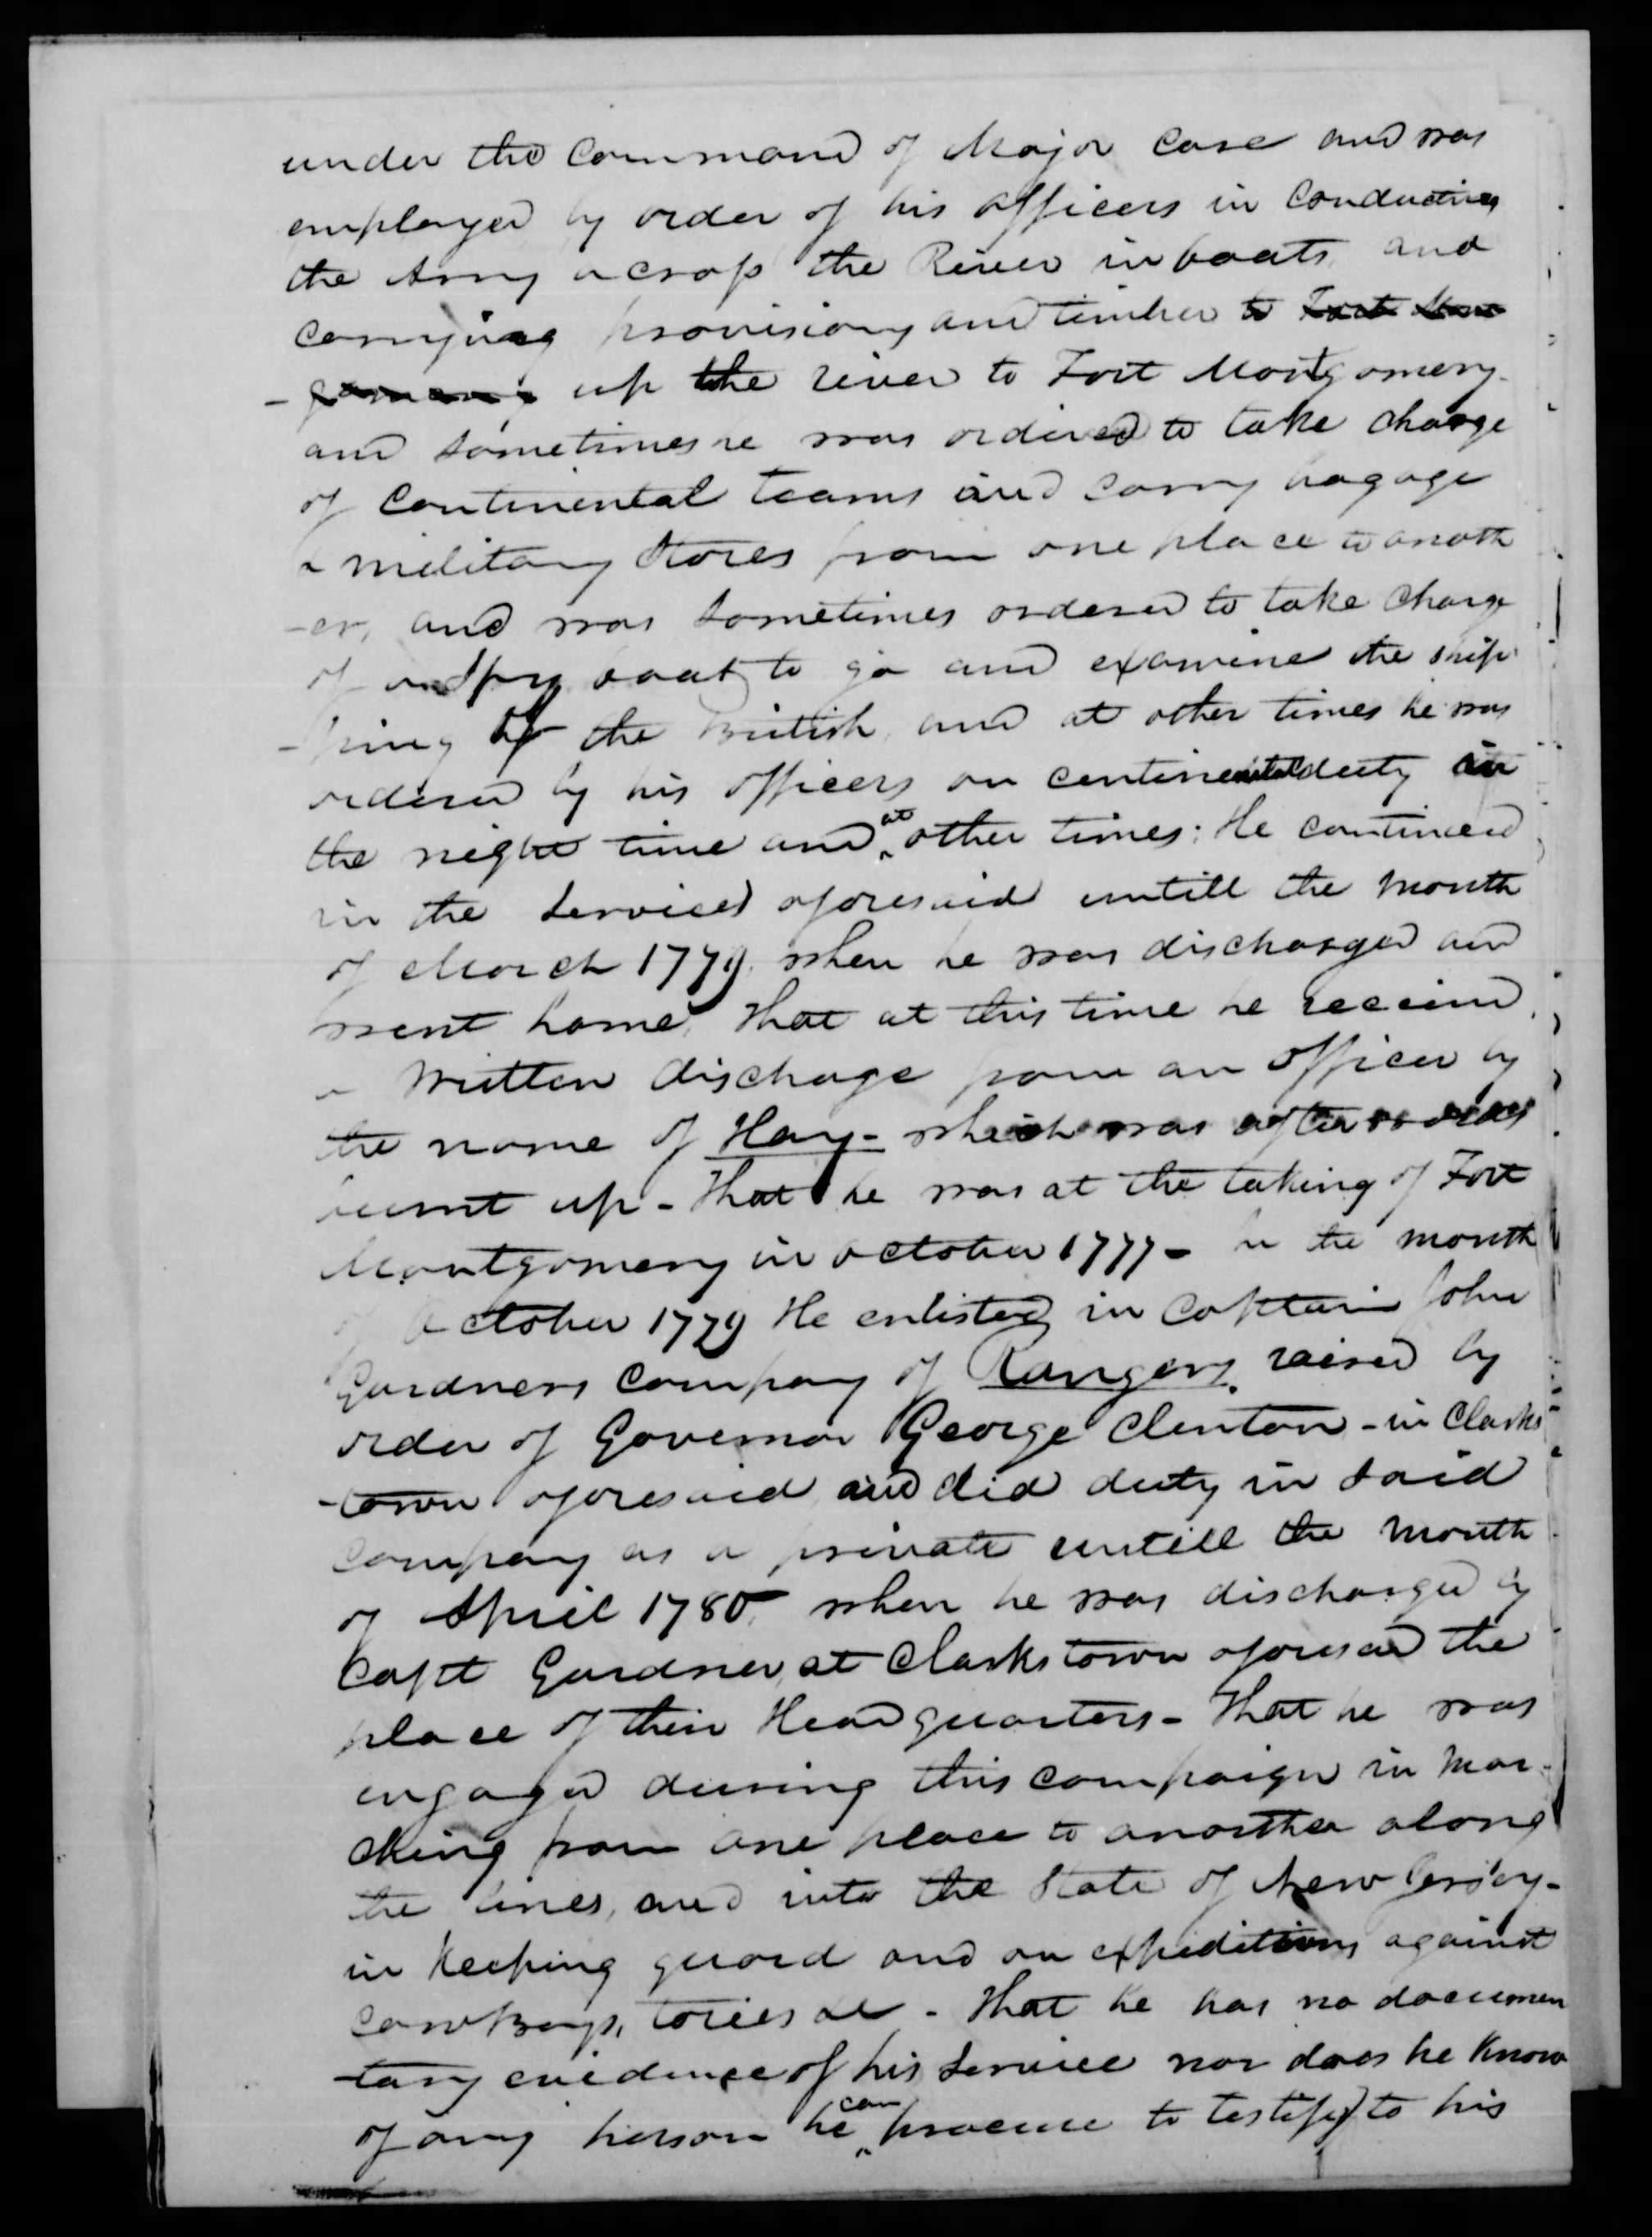 under the Command of Major Case and was
employed by order of his officers in Conducting
the Army across the River in boats and
Carrying provisions and timber to Fort Mont
-gomery up the river to Fort Montgomery.
and sometimes he was ordered to take charge
of Continental teams and carry bagage
& military stores from one place to anoth
-er, and was sometimes ordered to take charge
of spy boat to go and examine the ship
-ping of the British, and at other times he was
ordered by his officers on centinental duty in
the night time and at other times: He continued
in the service aforesaid untill the month
of March 1779. when he was discharged and
went home, that at this time he received
a written discharge from an officer by
the name of Hay - which was afterwards
burnt up - that he was at the taking of Fort
Montgomery in October 1777 - In the month
of October 1779 He enlisted in Captain John
Gardners Company of Rangers, raised by
order of Governor George Clinton - in Clarks
-town aforesaid and did duty in said
Company as a private untill the month
of April 1780. when he was discharged by
Capt Gardner, at Clarkstown aforesaid the
place of their Headquarters - That he was
engaged during this campaign in mar-
ching from one place to another along
the lines, and into the State of New Jersey -
in keeping guard and on expeditions against
CowBoys, tories &c - That he has no documen
-tary evidence of his service nor does he know
of any person he can procure to testify to his